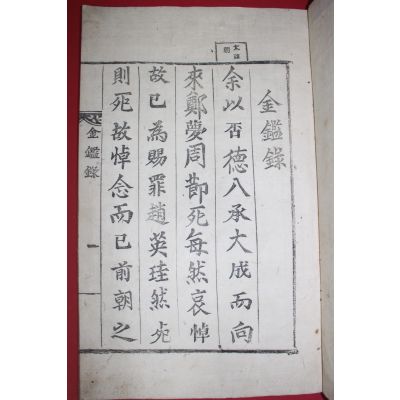 太祖朝
金鑑錄
余以否德入承大成而向
來鄭夢周節死每然哀悼
故已為賜罪趙英珪然死
則死故悼念而已前朝之
金鑑錄
一